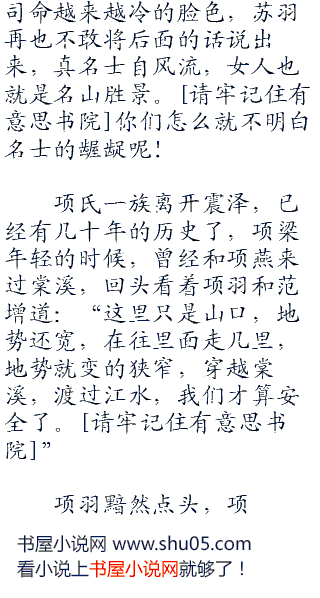 司命越来越冷的脸色，苏羽
再也不敢将后面的话说出
来，真名士自风流，女人也
就是名山胜景。[请牢记住有
意思书院]你们怎么就不明白
名士的龌龊呢！
项氏一族离开震泽，已
经有几十年的历史了，项梁
年轻的时候，曾经和项燕来
过棠溪，回头看着项羽和范
增道：“这里只是山口，地
势还宽，在往里面走几里，
地势就变的狭窄，穿越棠
溪，渡过江水，我们才算安
全了。[请牢记住有意思书
院]”
项羽黯然点头，项
书屋小说网 www.shu05.com
看小说上书屋小说网就够了！